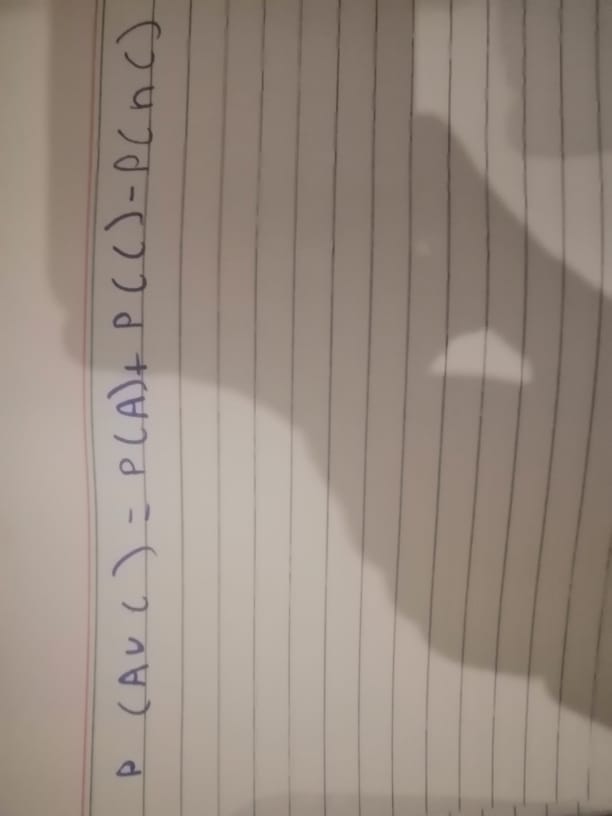 P (A∪C) = P(A)+ P(C)-P(∩C)